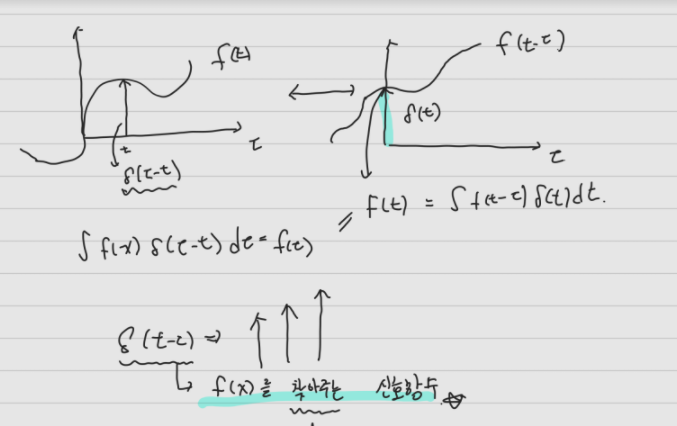 f(t)
τ
t
δ(τ-t)
f(t-τ)
δ(t)
τ
f(t) = ∫ f(t-τ) δ(t) dt.
∫ f(x) δ(τ-t) dτ = f(τ)
δ(t-τ) ⇒
f(x)를 찾아주는 신호함수